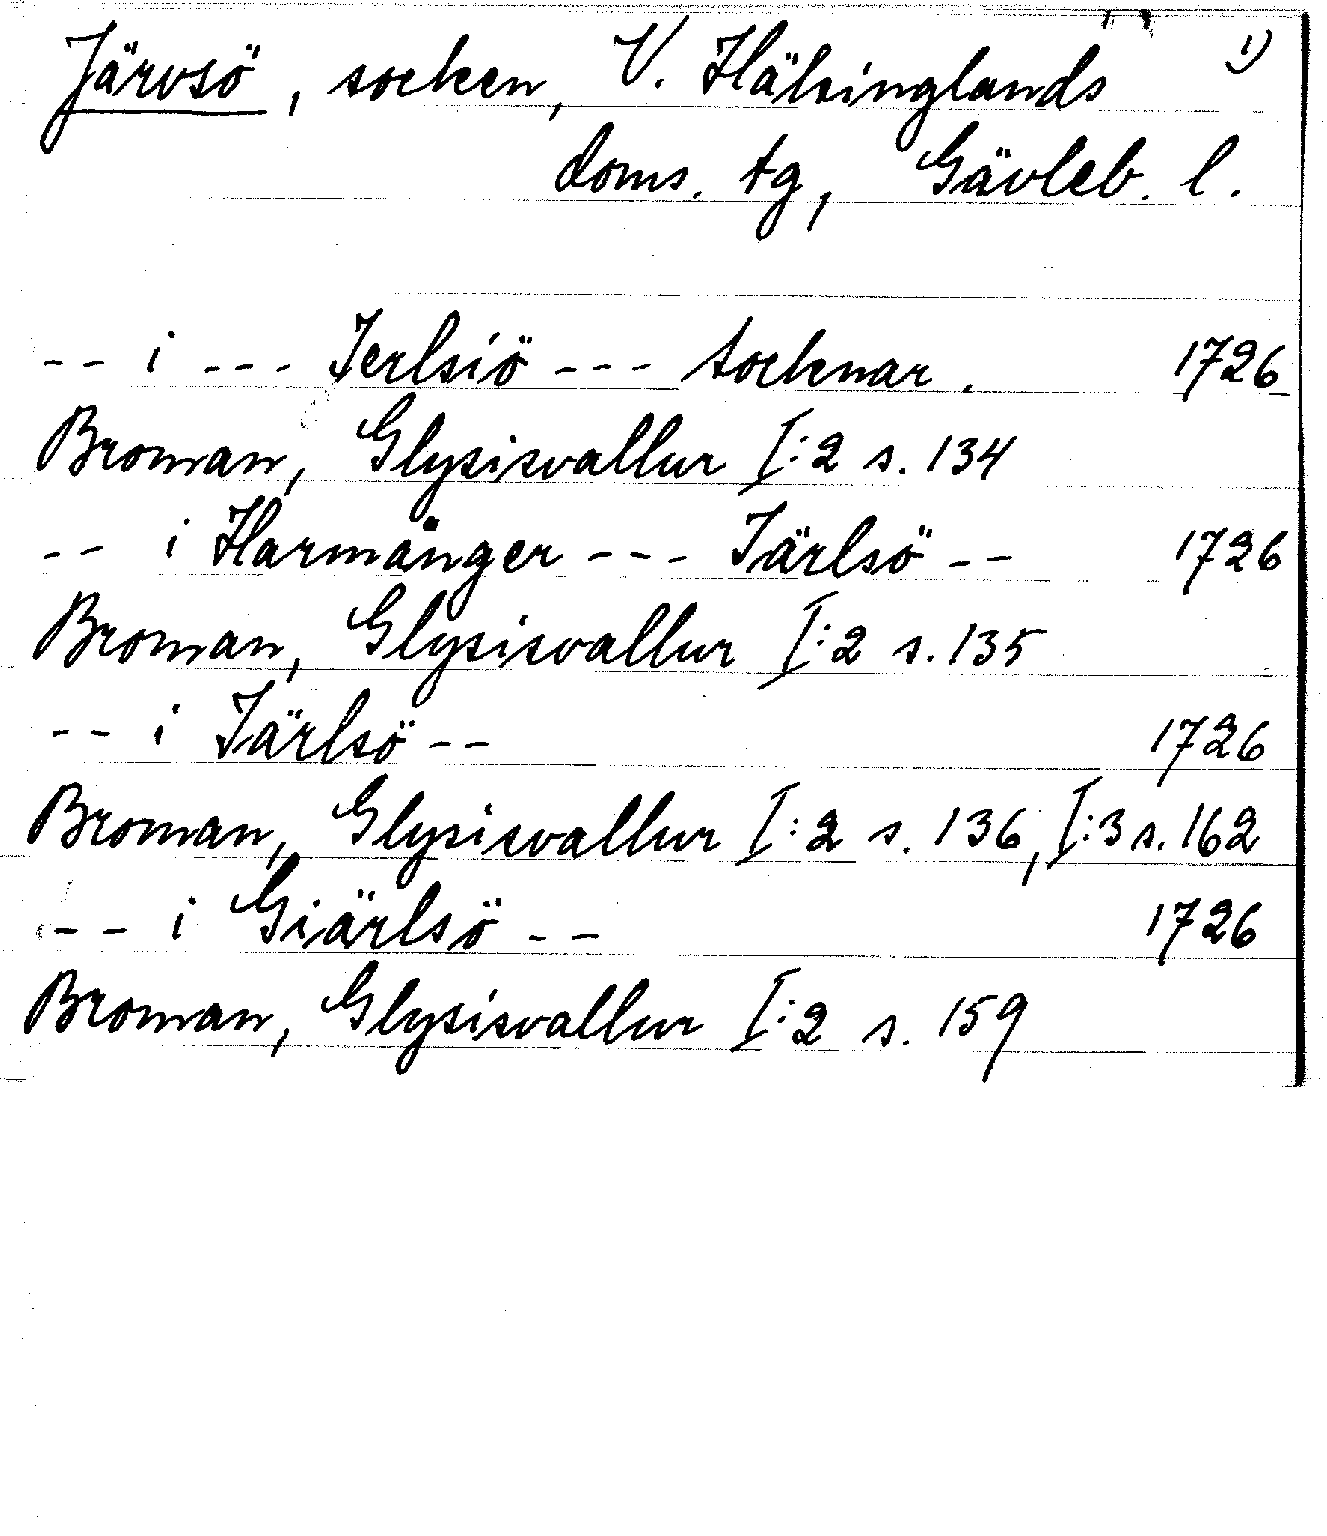 Järvsö, socken, V. Hälsinglands 1)
doms. tg, Gävleb. l.
-- i --- Jerlsiö --- Socknar. 1726
Broman, Glysisvallur I:2 s. 134
-- i Harmånger --- Järlsö -- 1726
Broman, Glysisvallur I:2 s. 135
-- i Järlsö -- 1726
Broman, Glysisvallur I:2 s. 136, I:3 s. 162
-- i Giärlsö -- 1726
Broman, Glysisvallur I:2 s. 159